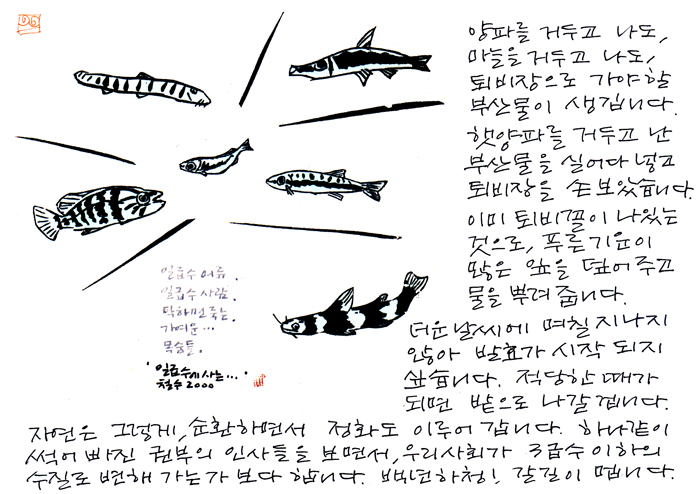 양파를 거두고 나도,
마늘을 거두고 나도,
퇴비장으로 가야할
부산물이 생깁니다.
햇양파를 거두고 난
부산물을 실어다 넣고
퇴비장을 손보았습니다.
이미 퇴비꼴이 나있는
것으로, 푸른기운이
많은 잎을 덮어주고
물을 뿌려 줍니다.
더운날씨에 며칠 지나지
않아 발효가 시작 되지
싶습니다. 적당한 때가
되면 밭으로 나갈겁니다.
자연은 그렇게, 순환하면서 정화도 이루어 갑니다. 하나같이
썩어 빠진 권부의 인사들을 보면서, 우리사회가 3급수 이하의
수질로 변해 가는가 보다 합니다. 백년하청! 갈길이 멉니다.
일급수 어류.
일급수 사람.
탁하면 죽는.
가여운...
목숨들.
'일급수에 사는...'
철수 2000